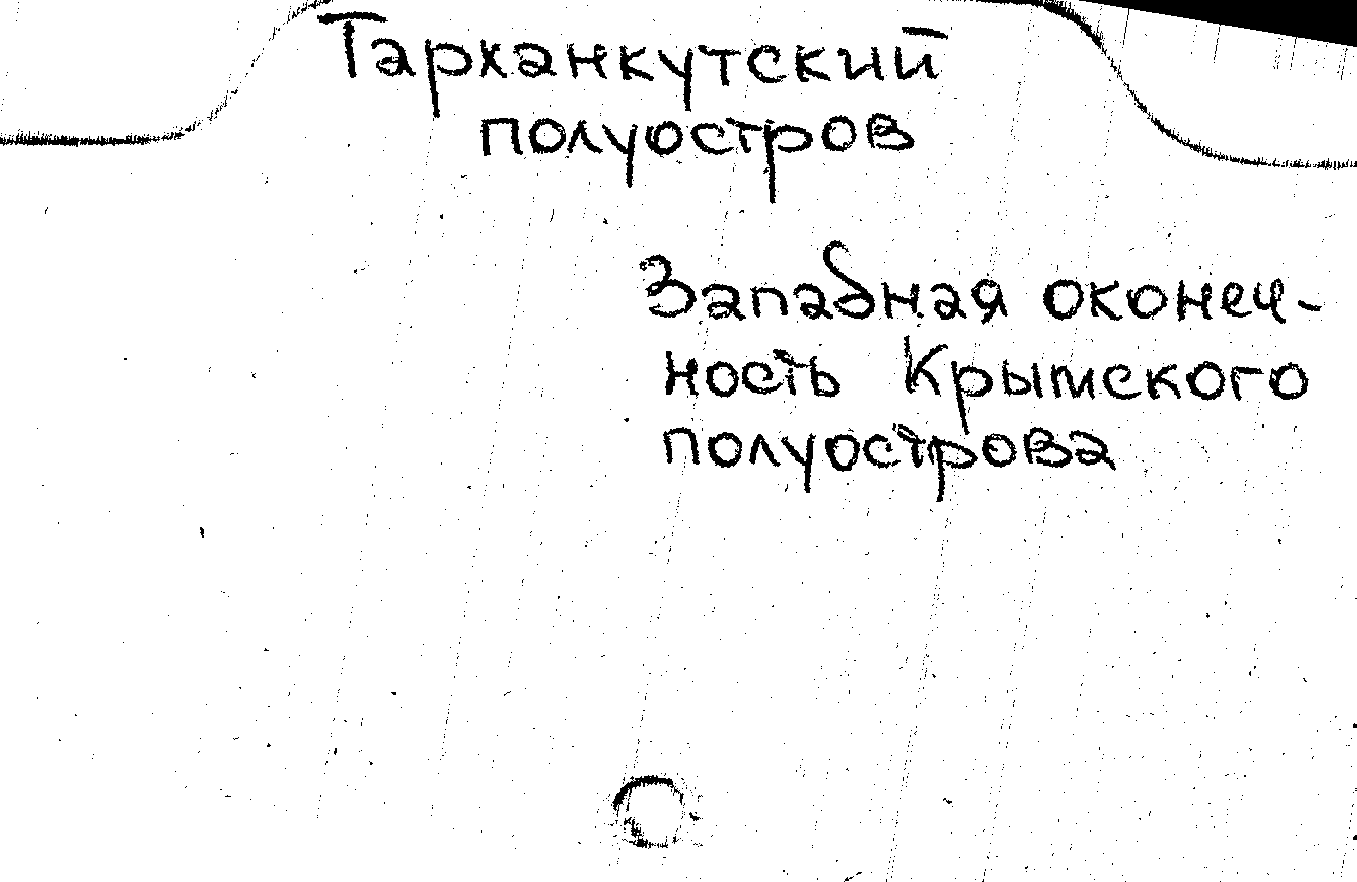 Тарханкутский
полуостров
Западная оконеч-
ность Крымского
полуострова